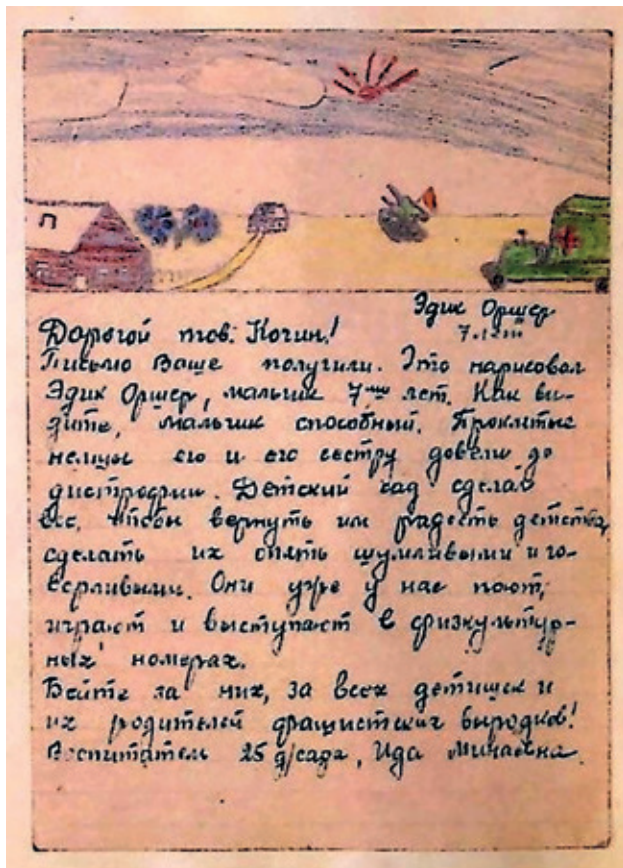 Эдик Оршер
7 лет
Дорогой тов. Кочин!
Письмо Ваше получили. Это нарисовал
Эдик Оршер, мальчик 7-ми лет. Как ви-
дите, мальчик способный. Проклятые
немцы его и его сестру довели до
дистрофии. Детский сад сделал
все, чтобы вернуть им радость детства,
сделать их опять шумливыми и го-
ворливыми. Они уже у нас поют,
играют и выступают в физкультур-
ных номерах.
Бейте за них, за всех детишек и
их родителей фашистских выродков!
Воспитатель 25 д/сада, Ида Минаевна.